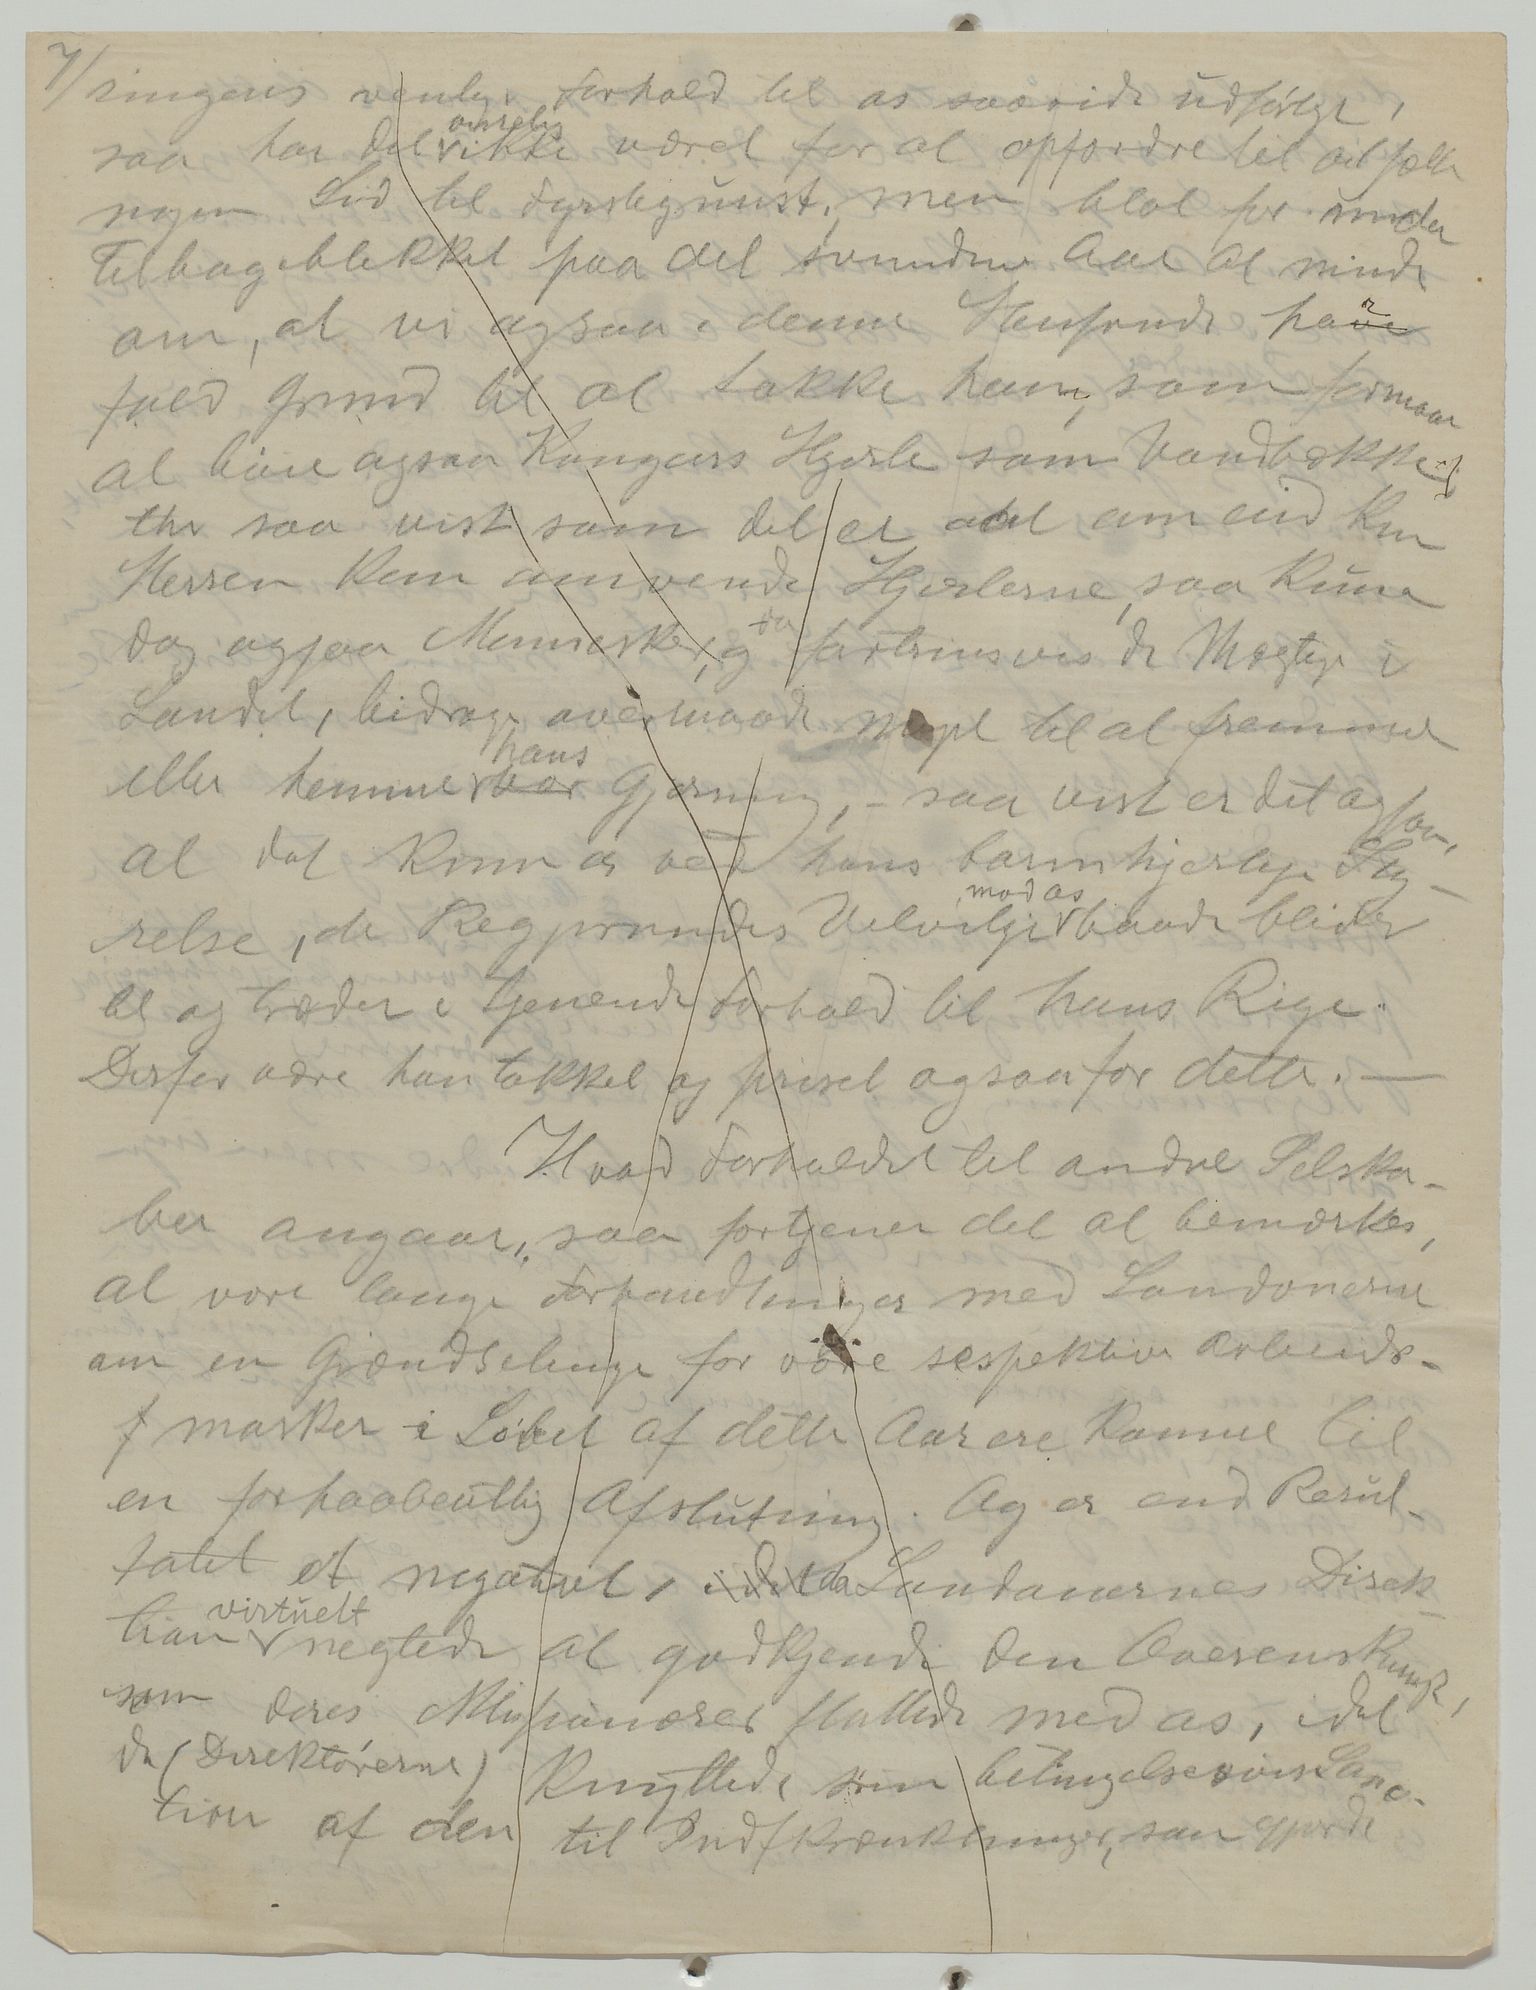 7/ ringens venlige Forhold til os saavidt udførlige,
saa har det visselig ikke været for at opfordre til at sætte
nogen Lid til Fyrstegunst, men blot for under
Tilbageblikket paa det svundne Aar at minde
om, at vi ogsaa i denne Henseende har
fuld Grund til at takke ham, som formaar
at bøie ogsaa Kongers Hjerte som Vandbække;
thi saa vist som det er at om end kun
Herren kan omvende Hjerterne, saa kunne
dog ogsaa Mennesker, og da fortrinsvis de Mægtige i
Landet, bidrage overmaade meget til at fremme
eller hemme vor hans Gjerning, – saa vist er det ogsaa,
at det kun er ved hans barmhjertige Sty-
relse, de Regjerendes Velvilje mod os baade bliver
til og træder i tjenende Forhold til hans Rige.
Derfor være han takket og priset ogsaa for dette. —
Hvad Forholdet til andre Selska-
ber angaar, saa fortjener det at bemærkes,
at vore lange Forhandlinger med Londonerne
om en Grændselinge for vore respektive Arbeids-
marker i Løbet af dette Aar ere komne til
en forhaabentlig Afslutning. Og er end Resul-
tatet et negativt, idet da Londonernes Direk-
tion virtuelt negtede at godkjende den Overenskomst,
som deres Missionærer sluttede med os, idet
de (Direktörerne) knyttede sin betingelsesvis Sanc-
tion af den til Indskrænkninger, som gjorde